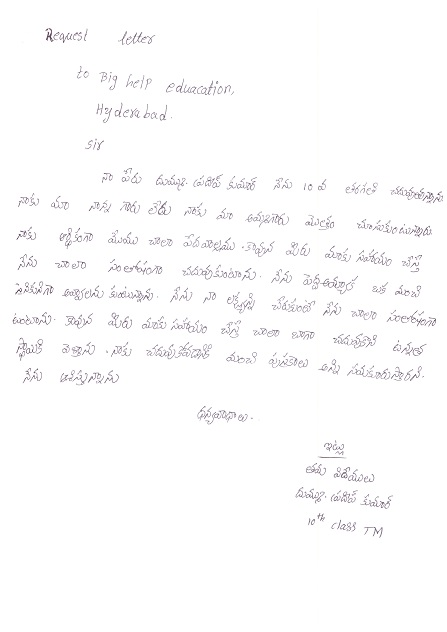 Request letter
to Big help eduacation,
Hyderabad.
sir
నా పేరు దుమ్ము. ప్రదీప్ కుమార్ నేను 10 వ తరగతి చదువుతున్నాను
నాకు మా నాన్న గారు లేరు నాకు మా అమ్మగారు మొత్తం చూసుకుంటున్నారు
నాకు ఆర్థికంగా మేము చాలా పేదవాళ్ళము. కావున మీరు మాకు సహాయం చేస్తే
నేను చాలా సంతోషంగా చదువుకుంటాను. నేను పెద్దఅయ్యాక ఒక మంచి
సైనికునిగా అవ్వాలను కుంటున్నాను. నేను నా లక్ష్యాన్ని చేరుకుంటే నేను చాలా సంతోషంగా
ఉంటాను. కావున మీరు మాకు సహాయం చేస్తే చాలా బాగా చదువుకొని ఉన్నత
స్థాయికి వెళ్తాను. నాకు చదువుకోవడానికి మంచి పుస్తకాలు అన్ని సమకూరుస్తారని.
నేను ఆశిస్తున్నాను
ధన్యవాదాలు.
ఇట్లు
తమ విధేయులు
దుమ్ము. ప్రదీప్ కుమార్
10th class TM